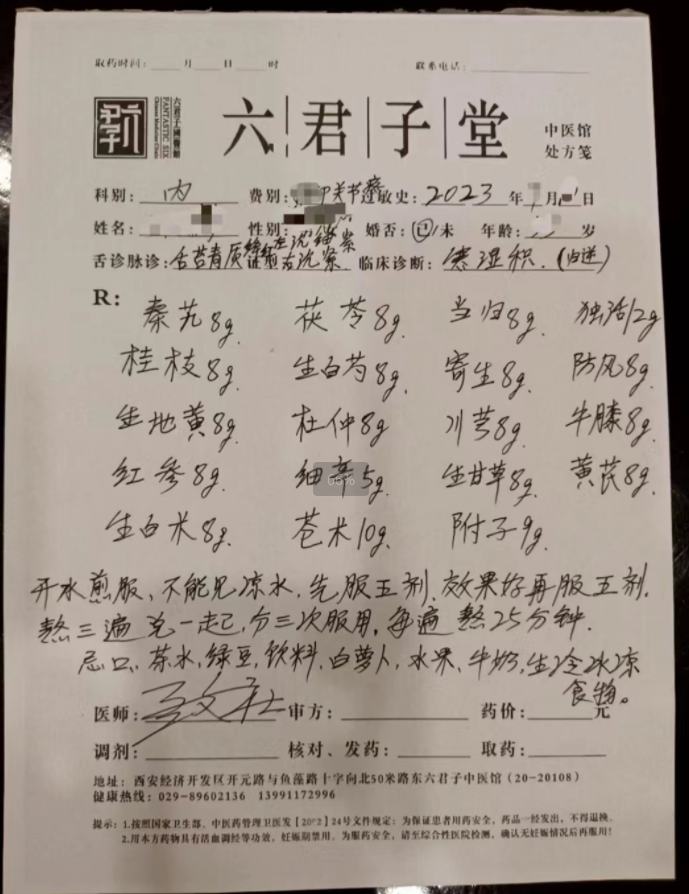 取药时间：____月____日____时 联系电话：____
六君子大国医馆
FANTASTIC SIX
六君子堂
中医馆
处方笺
科别：内 费别： 甲关节疼 过敏史：2023年 月 日
姓名： 性别： 婚否：已/未 年龄： 岁
舌诊脉诊：舌苔青质 左沉 紧 右沉紧 临床诊断：寒湿积.(归逆)
R:
秦艽8g. 茯苓8g. 当归8g. 独活12g
桂枝8g. 生白芍8g. 寄生8g. 防风8g.
生地黄8g. 杜仲8g 川芎8g. 牛膝8g.
红参8g. 细辛5g. 生甘草8g. 黄芪8g.
生白术8g. 苍术10g. 附子9g.
开水煎服、不能见凉水,先服五剂.效果好再服五剂.
熬三遍兑一起,分三次服用,每遍熬25分钟.
忌口、茶水,绿豆,饮料,白萝卜,水果、牛奶,生冷冰凉
食物。
医师： 审方：____ 药价：____元
调剂：____ 核对、发药：____ 取药：____
地址：西安经济开发区开元路与鱼藻路十字向北50米路东六君子中医馆（20-20108）
健康热线：029-89602136 13991172996
提示：1.按照国家卫生部、中医药管理卫医发【20°2】24号文件规定：为保证患者用药安全，药品一经发出，不得退换。
2.用本方药物具有活血调经等功效，妊娠期禁用。为服药安全，请至综合性医院检测，确认无妊娠情况后再服用！